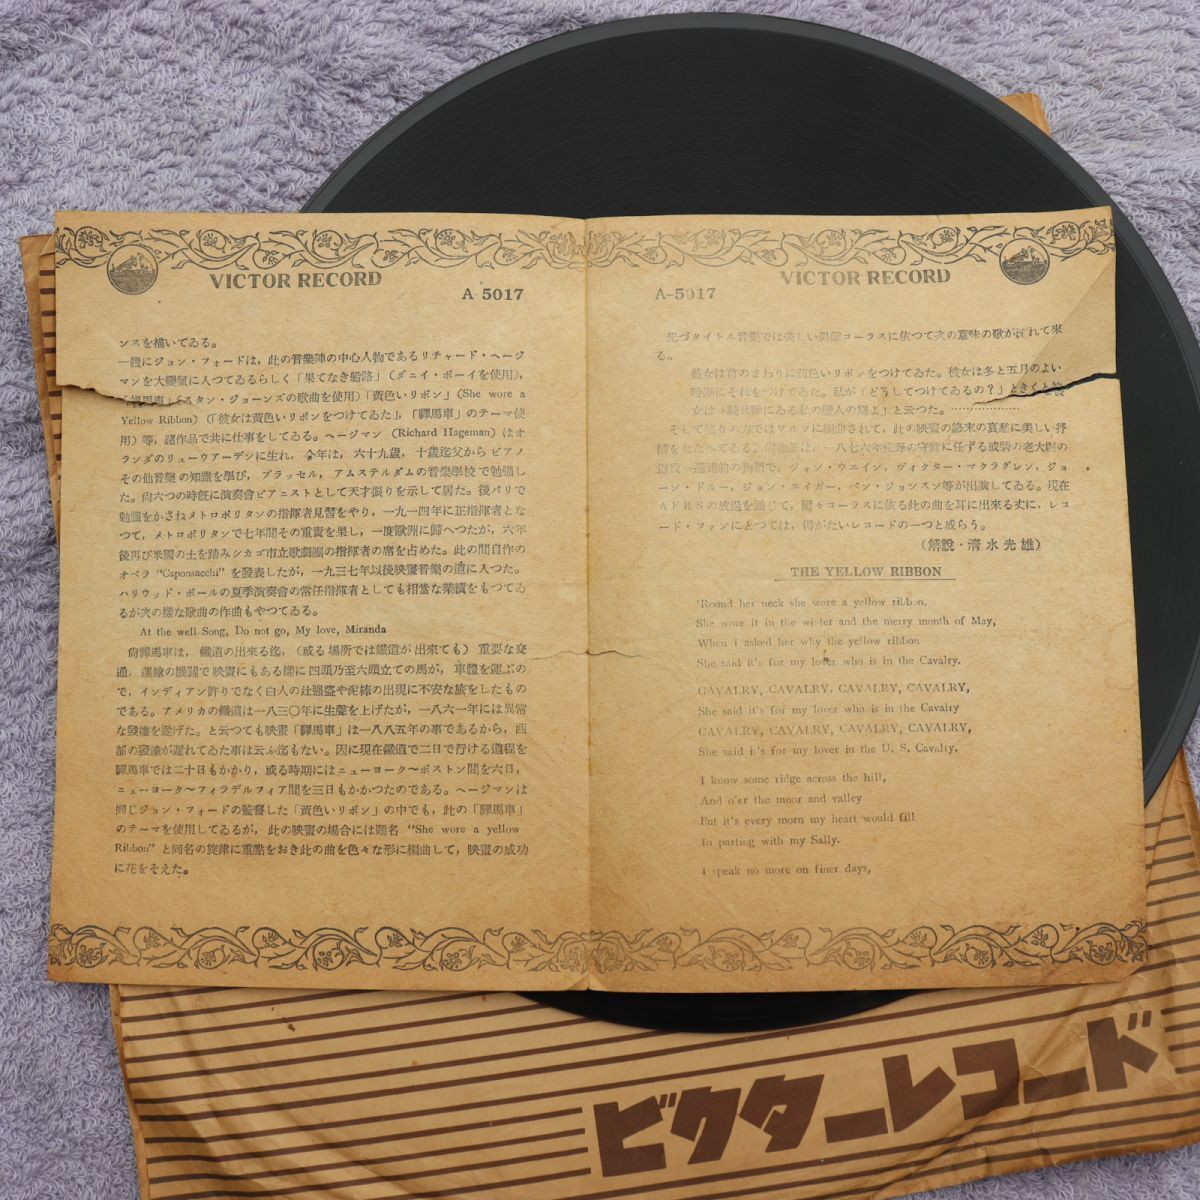 VICTOR RECORD
A-5017
ンスを描いてゐる。
一體にジョン・フォードは，此の音樂陣の中心人物であるリチャード・ヘージ
マンを大變氣に入つてゐるらしく「果てなき船路」（ダニイ・ボーイを使用），
「驛馬車」（スタン・ジョーンズの歌曲を使用）「黄色いリボン」（She wore a
Yellow Ribbon）（「彼女は黄色いリボンをつけてゐた」，「驛馬車」のテーマ使
用）等，諸作品で共に仕事をしてゐる。ヘージマン（Richard Hageman）はオ
ランダのリューウアーデンに生れ，今年は，六十九歳，十歳迄父からピアノ
その他音樂の知識を學び，ブラッセル，アムステルダムの音樂學校で勉強し
た。尙六つの時旣に演奏會ピアニストとして天才振りを示して居た。後パリで
勉強をかさねメトロポリタンの指揮者見習をやり，一九一四年に正指揮者とな
つて，メトロポリタンで七年間その重責を果し，一度歐洲に歸へつたが，六年
後再び米國の土を踏みシカゴ市立歌劇團の指揮者の席を占めた。此の間自作の
オペラ “Caponsacchi” を發表したが，一九三七年以後映畫音樂の道に入つた。
ハリウッド・ボールの夏季演奏會の常任指揮者としても相當な業績をもつてゐ
るが次の様な歌曲の作曲もやつてゐる。
At the well Song, Do not go, My love, Miranda
尙驛馬車は，鐵道の出來る迄，（或る場所では鐵道が出來ても）重要な交
通，運輸の機關で映畫にもある様に四頭乃至六頭立ての馬が，車體を運ぶの
で，インディアン許りでなく白人の辻强盗や泥棒の出現に不安な旅をしたもの
である。アメリカの鐵道は一八三〇年に生聲を上げたが，一八六一年には異常
な發達を遂げた。と云つても映畫「驛馬車」は一八八五年の事であるから，西
部の發達が遲れてゐた事は云ふ迄もない。因に現在鐵道で二日で行ける道程を
驛馬車では二十日もかかり，或る時期にはニューヨーク〜ボストン間を六日，
ニューヨーク〜フィラデルフィア間を三日もかかつたのである。ヘージマンは
同じジョン・フォードの監督した「黄色いリボン」の中でも，此の「驛馬車」
のテーマを使用してゐるが，此の映畫の場合には題名 “She wore a yellow
Ribbon” と同名の旋律に重點をおき此の曲を色々な形に編曲して，映畫の成功
に花をそえた。
VICTOR RECORD
A-5017
先づタイトル音樂では美しい男聲コーラスに依つて次の意味の歌が流れて來
る。
彼女は首のまわりに黄色いリボンをつけてゐた。彼女は冬と五月のよい
時期にそれをつけてゐた。私が「どうしてつけてゐるの？」ときくと彼
女は「騎兵隊にゐる私の戀人の爲よ」と云つた。
そして終りの方ではワルツに編曲されて，此の映畫の終末の哀愁に美しい抒
情をたたへてゐる。尙物語は，一八七六年荒野の守備に任ずる或砦の老大尉の
退役一週間前の物語で，ジョン・ウエイン，ヴィクター・マクラグレン，ジョ
ーン・ドルー，ジョン・エイガー，ベン・ジョンスン等が出演してゐる。現在
AFRSの放送を通じて，屢々コーラスに依る此の曲を耳に出來る丈に，レコ
ード・ファンにとつては，得がたいレコードの一つと成らう。
（解說・淸水光雄）
THE YELLOW RIBBON
'Round her neck she wore a yellow ribbon,
She wore it in the winter and the merry month of May,
When I asked her why the yellow ribbon
She said it's for my lover who is in the Cavalry.
CAVALRY, CAVALRY, CAVALRY, CAVALRY,
She said it's for my lover who is in the Cavalry
CAVALRY, CAVALRY, CAVALRY, CAVALRY,
She said it's for my lover in the U. S. Cavalry.
I know some ridge across the hill,
And o'er the moor and valley
But it's every morn my heart would fill
In parting with my Sally.
I speak no more on finer days,
ビクターレコード